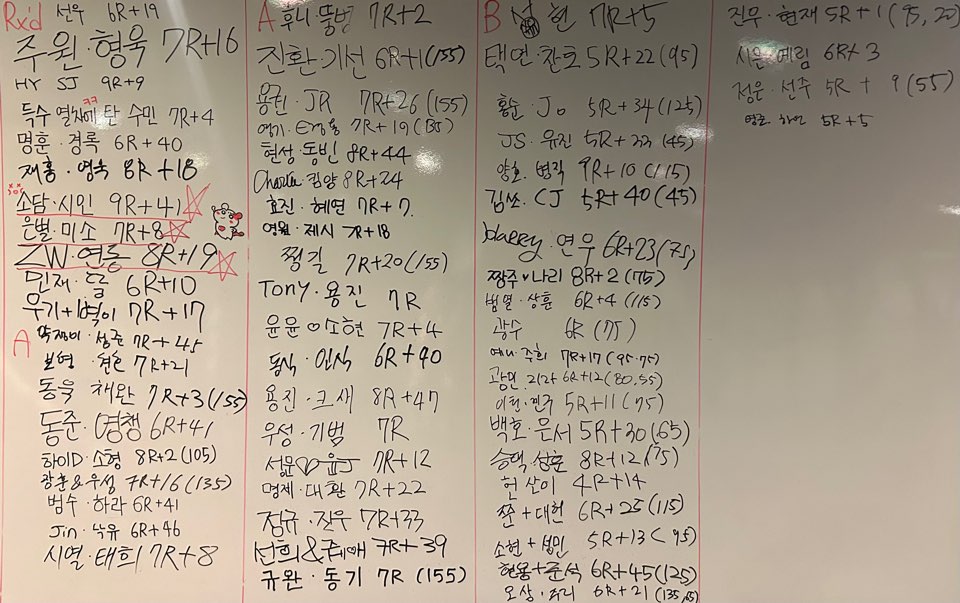 Rx'd 선우 6R+19
주원·형욱 7R+16
HY SJ 9R+9
ㅋㅋ
득수 열차에 탄 수민 7R+4
명훈·경록 6R+40
재홍·영욱 8R+18
소담·시인 9R+41
은별·미소 7R+8
ZW·연동 8R+19
민재·달 6R+10
우기+벽이 7R+17
A
7R+45
보영 7R+21
동욱 채완 7R+3(155)
동준·영챙 6R+41
하이D·소형 8R+2(105)
광훈&우성 7R+16(135)
범수·하라 6R+41
Jin·낙유 6R+46
시열·태희 7R+8
A 후니·뚤병 7R+2
진환·기선 6R+1(155)
용진·JR 7R+26(155)
7R+19
현성 동빈 8R+44
Charlie 킴양 8R+24
효진·혜연 7R+7
영원·제시 7R+18
찡길 7R+20(155)
Tony·용진 7R
윤윤♡소현 7R+4
동식·인식 6R+40
용진·크새 8R+47
우성·기범 7R
서문♡윤J 7R+12
명제·대환 7R+22
정규·진우 7R+33
선희& 7R+39
규완·동기 7R (155)
B 현 7R+5
택연·찬토 5R+22(95)
홍순·Jo 5R+34(125)
JS·유진 5R+33(45)
양호·병직 9R+10(115)
김쓰·CJ 5R+40(45)
Harry·연우 6R+23(75)
짱주♥나리 8R+2(175)
범열·상훈 6R+4(115)
광수 6R(75)
예니·주희 7R+17(95.75)
광민·리라 6R+12(80.55)
이천·민주 5R+11(75)
백호·은서 5R+30(65)
승택·성훈 8R+12(75)
헌 산이 4R+14
쭌+대헌 6R+25(115)
소현+성민 5R+13(95)
현용+준석 6R+45(125)
오상·주리 6R+21
진무·현재 5R+1
시윤·예림 6R+3
정은·선주 5R+9(55)
5R+5